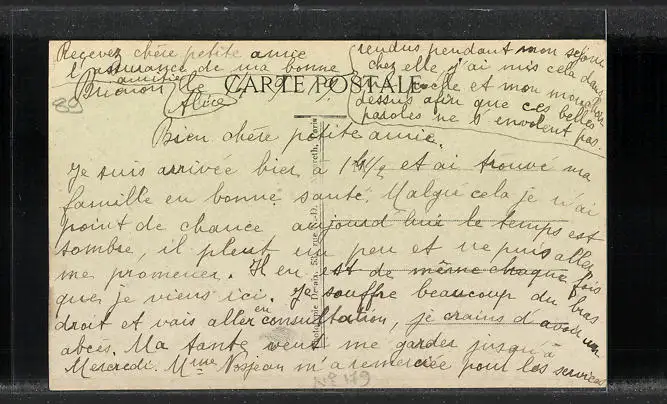 Recevez chère petite amie
l'assurance de ma bonne
amitié
Alice
rendus pendant mon séjour
chez elle, j'ai mis cela dans
poche et mon mouchoir
dessus afin que ces belles
paroles ne s'envolent pas.
CARTE POSTALE
89
Bien chère petite amie.
Je suis arrivée hier à 1h 1/2 et ai trouvé ma
famille en bonne santé. Malgré cela je n'ai
point de chance aujourd'hui le temps est
sombre, il pleut un peu et ne puis aller
me promener. Il en est de même chaque fois
que je viens ici. Je souffre beaucoup du bras
droit et vais aller en consultation, je crains d'avoir un
abcès. Ma tante veut me garder jusqu'à
Mercredi. Mme Nosjean m'a remerciée pour les services
No 179